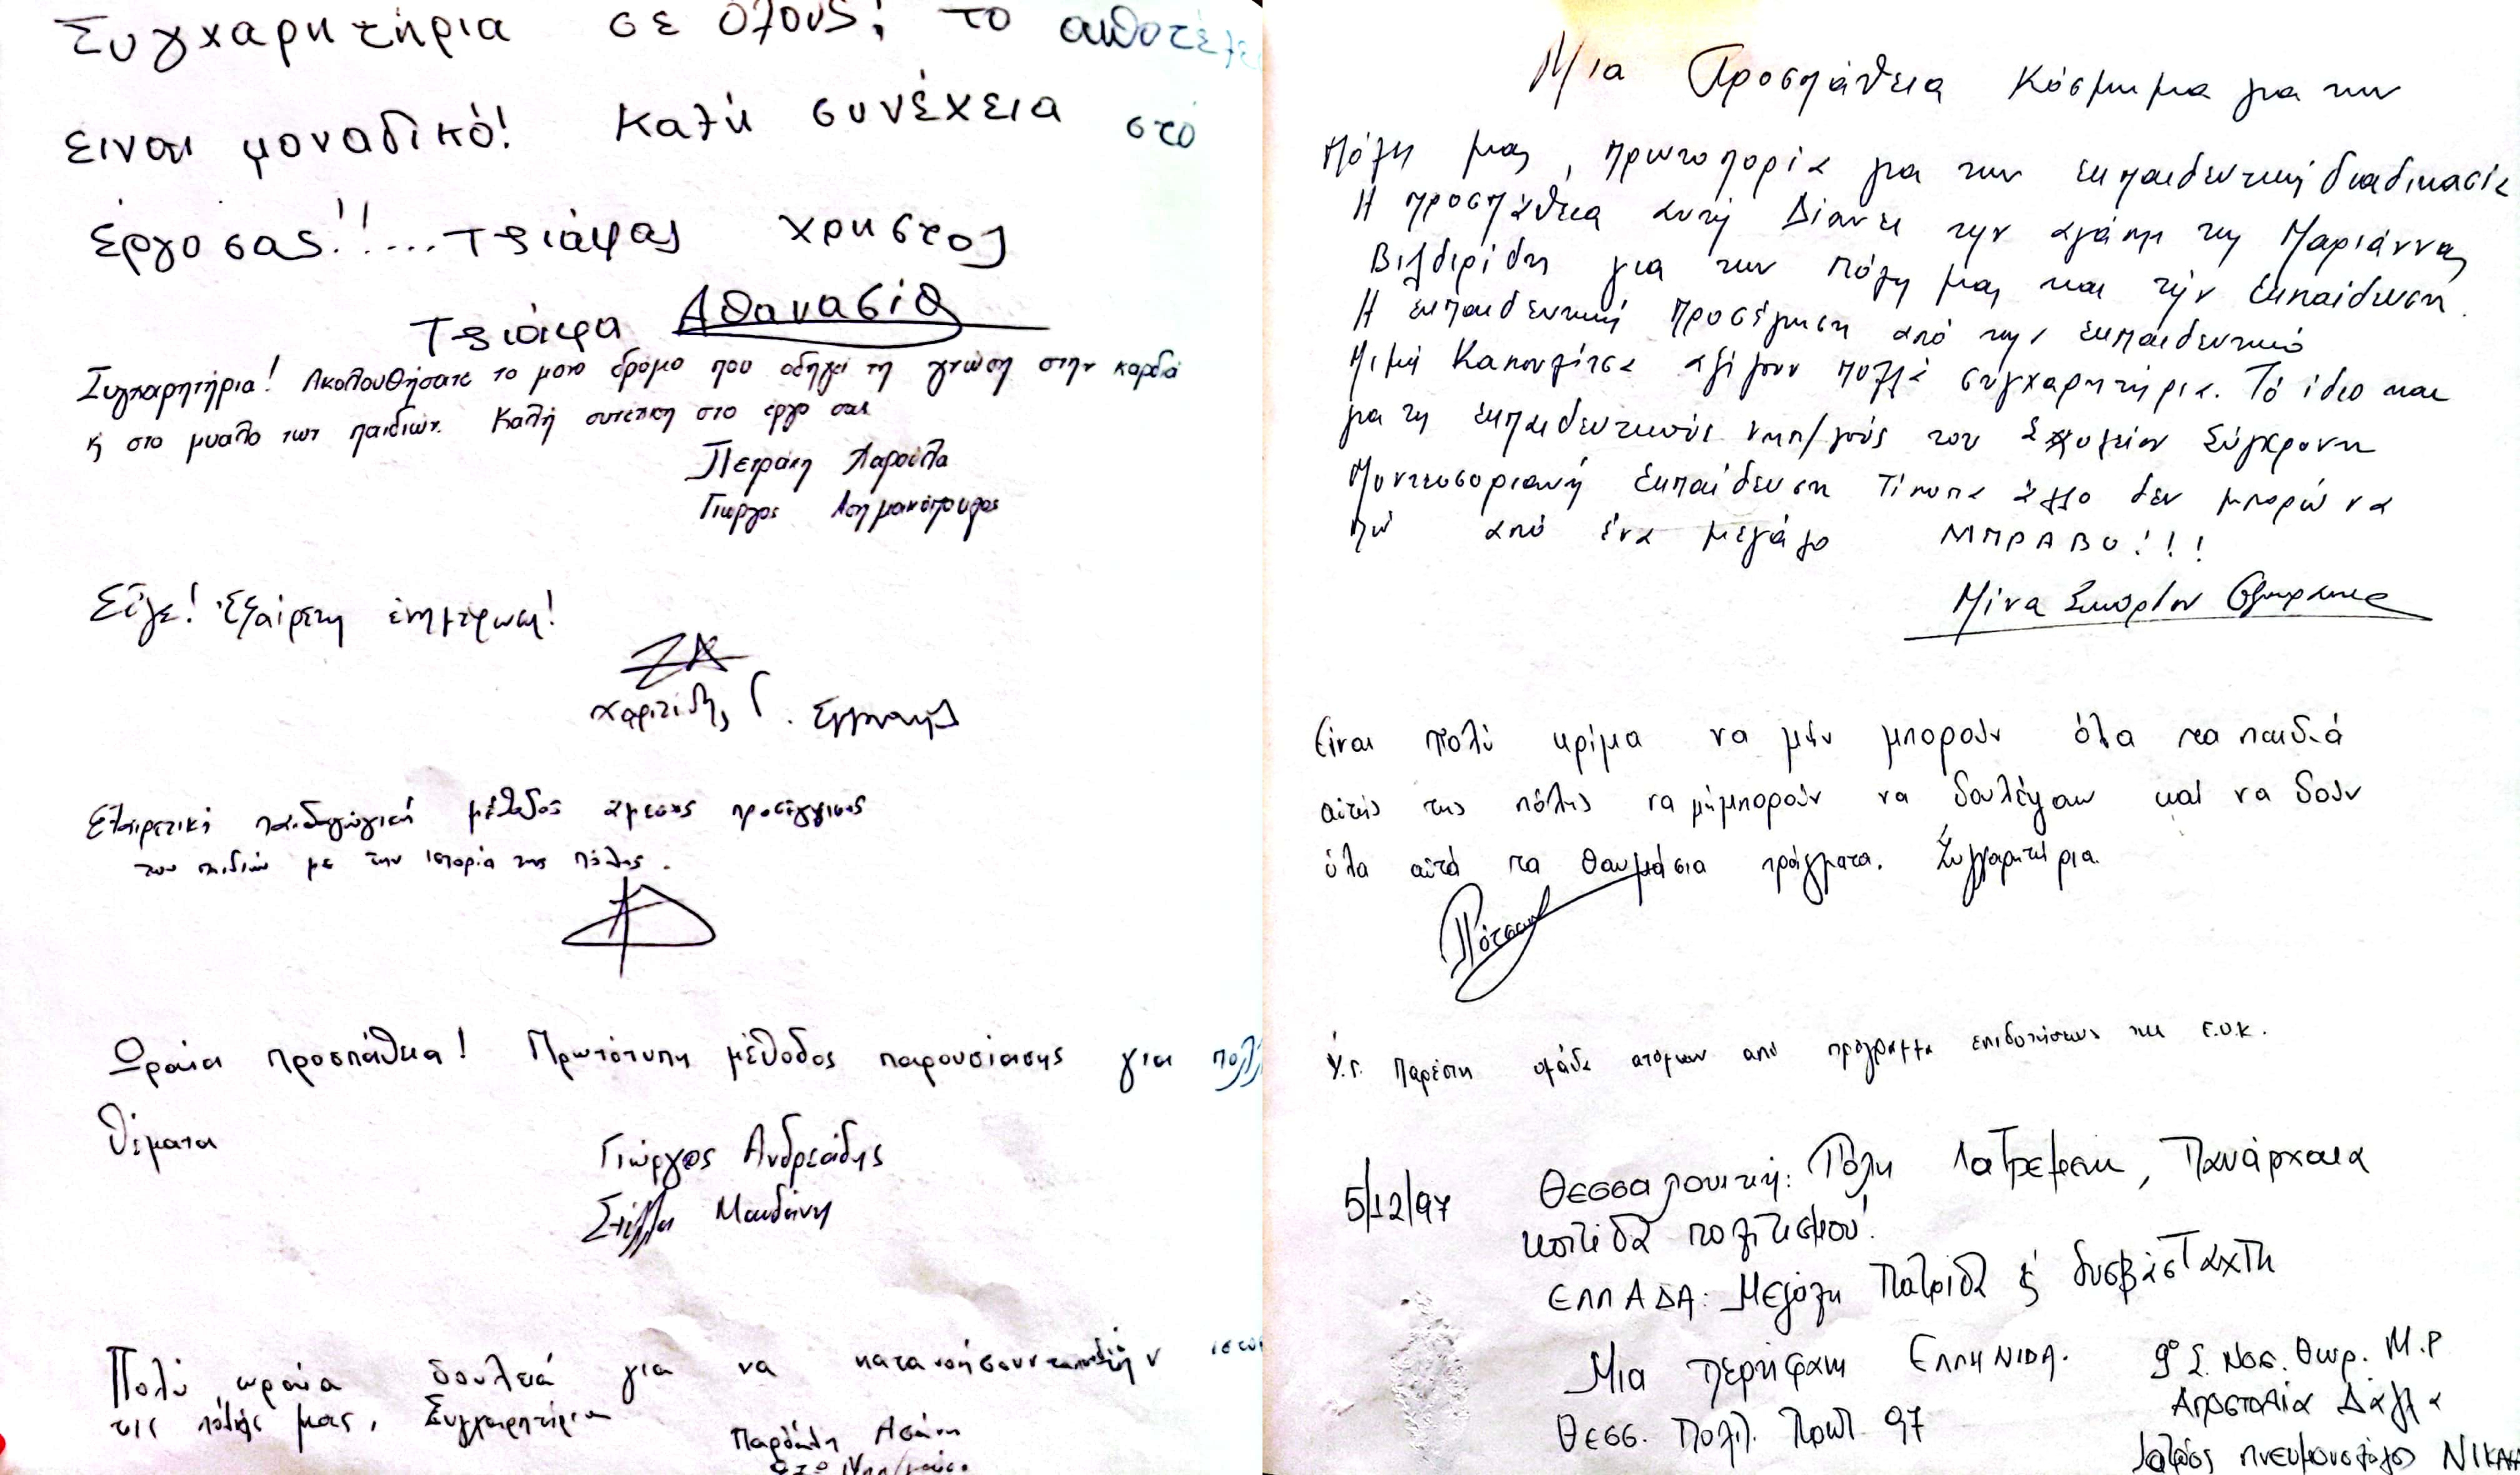 Συγχαρητήρια σε όλους; το αποτέλε
είναι μοναδικό! Καλή συνέχεια στο
έργο σας!!... Τσιάρας Χρήστος
Τσιάρα Αθανασία
Συγχαρητήρια! Ακολουθήσατε το μόνο δρόμο που οδηγεί τη γνώση στην καρδιά
ή στο μυαλό των παιδιών. Καλή συνέχεια στο έργο σας
Πετράκη Χαρούλα
Γιώργος Ασημακόπουλος
Εὖγε! Ἐξαίρετη ἐνημέρωση!
Χαριτίδης Γ.
Εξαιρετική παιδαγωγική μέθοδος άμεσης προσέγγισης
των παιδιών με την ιστορία της πόλης.
Ωραία προσπάθεια! Πρωτότυπη μέθοδος παρουσίασης για πολλ
θέματα
Γιώργος Ανδρεάδης
Στέλλα
Πολύ ωραία δουλειά για να κατανοήσουν τα παιδιά την ιστο
της πόλης μας, Συγχαρητήρια
Μια Προσπάθεια Κόσμημα για την
πόλη μας, πρωτοπορία για την εκπαιδευτική διαδικασία
Η προσπάθεια αυτή Δίανει την αγάπη της Μαριάννας
Βιλδιρίδη για την πόλη μας και την Εκπαίδευση.
Η εκπαιδευτική προσέγγιση από την εκπαιδευτικό
Μιμή Καπουλίτσα αξίζουν πολλά συγχαρητήρια. Τό ίδιο και
για τη εκπαιδευτικούς νηπ/γούς του Σχολείου Σύγχρονη
Μοντεσσοριανή Εκπαίδευση Τίποτα άλλο δεν μπορώ να
πώ από ένα μεγάλο ΜΠΡΑΒΟ!!!
Μίνα
Είναι πολύ κρίμα να μήν μπορούν όλα τα παιδιά
αὐτής της πόλης να μή μπορούν να δουλέψουν καί να δούν
όλα αὐτά τα θαυμάσια πράγματα. Συγχαρητήρια.
Υ.Γ. Παρέστη ομάδα ατόμων από πρόγραμμα επιδοτήσεως της Ε.Ο.Κ.
5/12/97 Θεσσαλονίκη: Πόλη λατρεμένη, Πανάρχαια
κοιτίδα πολιτισμού!
ΕΛΛΑΔΑ: Μεγάλη Πατρίδα & δυσβάσταχτη
Μια περήφανη ΕΛΛΗΝΙΔΑ.
Θεσσ. Πολιτ. Πρωτ. 97
9ο Σ. Νοσ. Θωρ. Μ.Ρ
Αποστολία Δάλλα
Ιατρός πνευμονολόγος ΝΙΚΑΙ